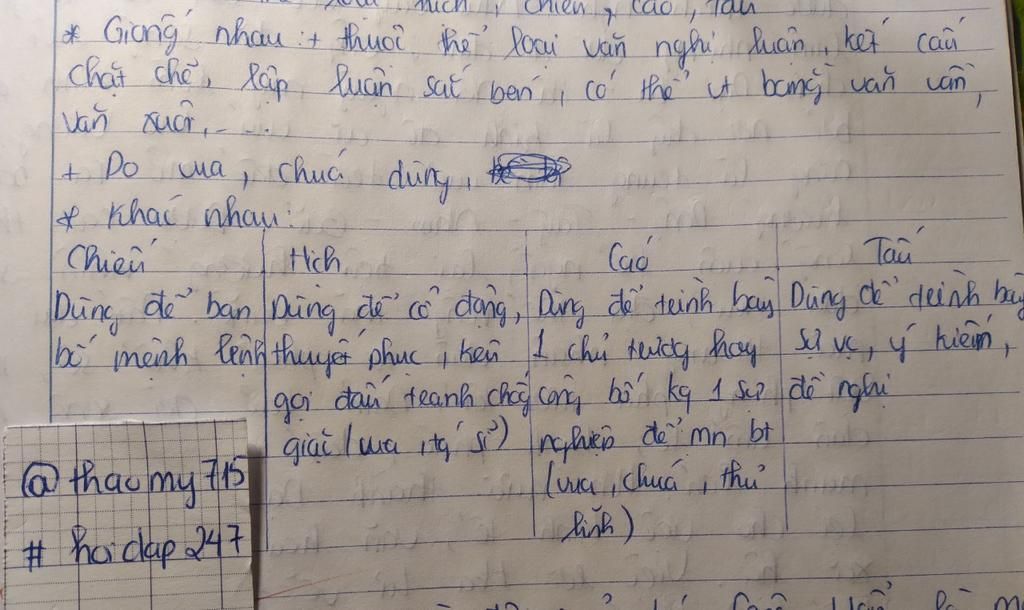 hịch, chiếu, cáo, tấu
* Giống nhau: + thuộc thể loại văn nghị luận, kết cấu
chặt chẽ, lập luận sắc bén, có thể vt bằng văn vần,
văn xuôi, ....
+ Do vua, chúa dùng,
* Khác nhau:
Chiếu
Dùng để ban
bố mệnh lệnh
Hịch
Dùng để cổ động,
thuyết phục, kêu
gọi đấu tranh chống
giặc (vua, tg sĩ)
Cáo
Dùng để trình bày
1 chủ trương hay
công bố kq 1 sự
nghiệp để mn bt
(vua, chúa, thủ
lĩnh)
Tấu
Dùng để trình bày
sự vc, ý kiến,
đề nghị
@ thaomy715
# hoidap247